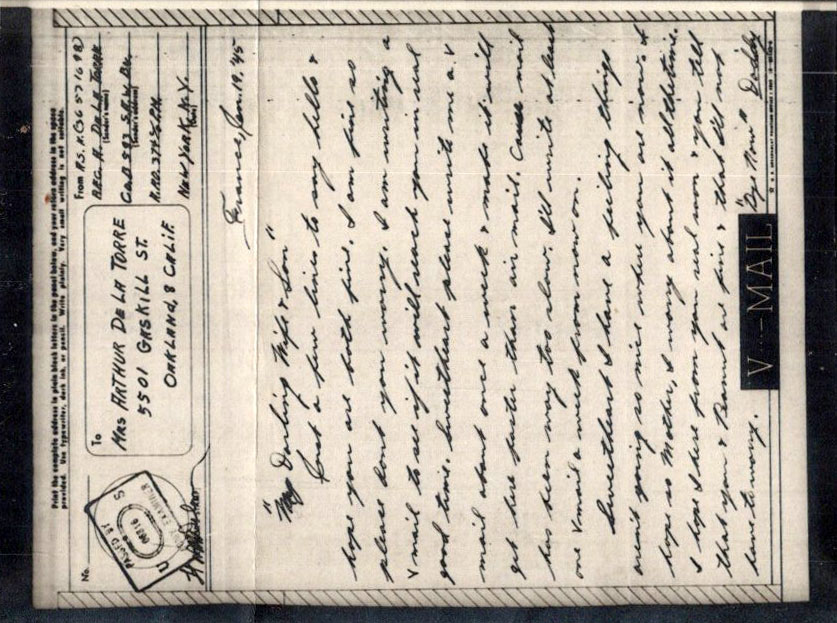 Print the complete address in plain block letters in the panel below, and your return address in the space
provided. Use typewriter, dark ink, or pencil. Write plainly. Very small writing is not suitable.
No.
PASSED BY
U S
ARMY EXAMINER
To
MRS ARTHUR DE LA TORRE
5501 GASKILL ST.
OAKLAND, 8 CALIF.
From
PFC. A. DE LA TORRE
(Sender's name)
(Sender's address)
NEW YORK, N.Y.
(Date)
France, Jan. 19, '45
"My Darling Wife & Son"
Just a few lines to say hello &
hope you are both fine. I am fine so
please dont you worry. I am writing a
V mail to see if it will reach you in real
good time. Sweetheart please write me a V
mail about once a week & mabe it will
get here faster then air mail. Cause mail
has been way too slow. I'll write at least
one V mail a week from now on.
Sweetheart I have a feeling things
arent going so nice where you are now. I
hope so Mother, I worry about it all the time.
I hope I hear from you real soon & you tell
that you & Peanut are fine & that I'll not
have to worry.
"Bye Now" Daddy
V-MAIL